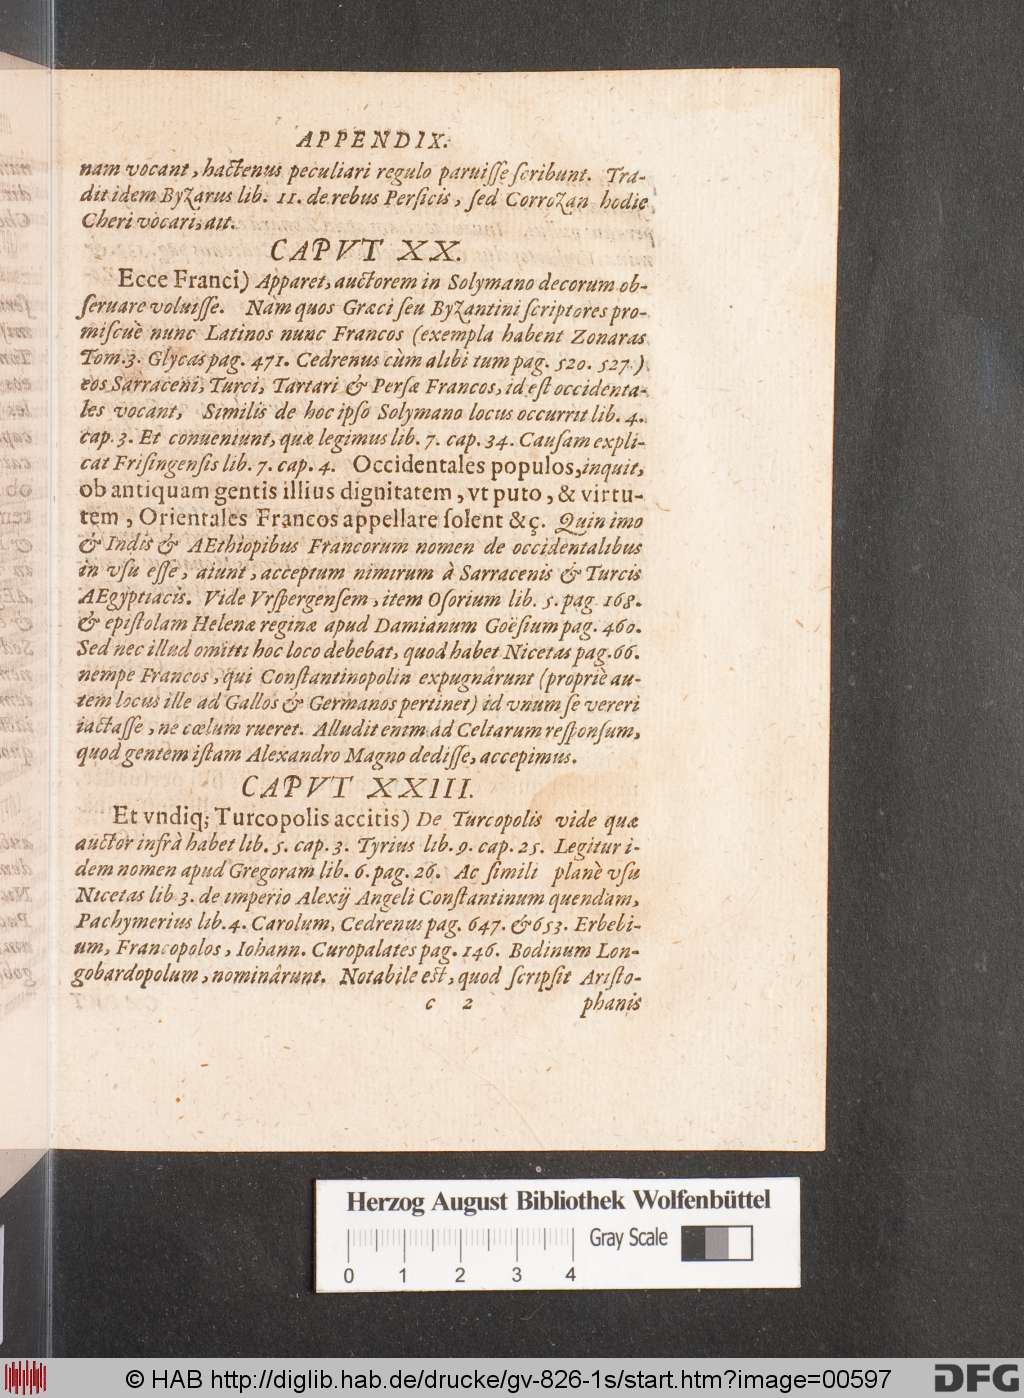 APPENDIX.
nam vocant, hactenus peculiari regulo paruiſſe ſcribunt. Tra-
dit idem Byzarus lib. 11. de rebus Perſicis, ſed Corrozan hodie
Cheri vocari, ait.
CAPVT XX.
Ecce Franci) Apparet, auctorem in Solymano decorum ob-
ſeruare voluiſſe. Nam quos Græci ſeu Byzantini ſcriptores pro-
miſcuè nunc Latinos nunc Francos (exempla habent Zonaras
Tom.3. Glycas pag. 471. Cedrenus cùm alibi tum pag. 520. 527.)
eos Sarraceni, Turci, Tartari & Perſæ Francos, id eſt occidenta-
les vocant, Similis de hoc ipſo Solymano locus occurrit lib. 4.
cap. 3. Et conueniunt, quæ legimus lib. 7. cap. 34. Cauſam expli-
cat Friſingenſis lib. 7. cap. 4. Occidentales populos, inquit,
ob antiquam gentis illius dignitatem, vt puto, & virtu-
tem, Orientales Francos appellare ſolent &ç. Quin imo
& Indis & AEthiopibus Francorum nomen de occidentalibus
in vſu eſſe, aiunt, acceptum nimirum à Sarracenis & Turcis
AEgyptiacis. Vide Vrſpergenſem, item Oſorium lib. 5. pag 168.
& epiſtolam Helenæ reginæ apud Damianum Goëſium pag. 460.
Sed nec illud omitti hoc loco debebat, quod habet Nicetas pag. 66.
nempe Francos, qui Conſtantinopolin expugnârunt (propriè au-
tem locus ille ad Gallos & Germanos pertinet) id vnum ſe vereri
iactaſſe, ne cœlum rueret. Alludit enim ad Celtarum reſponſum,
quod gentem iſtam Alexandro Magno dediſſe, accepimus.
CAPVT XXIII.
Et vndiq; Turcopolis accitis) De Turcopolis vide quæ
auctor infrà habet lib. 5. cap. 3. Tyrius lib. 9. cap. 25. Legitur i-
dem nomen apud Gregoram lib. 6. pag. 26. Ac ſimili planè vſu
Nicetas lib 3. de imperio Alexij Angeli Conſtantinum quendam,
Pachymerius lib. 4. Carolum, Cedrenus pag. 647. & 653. Erbebi-
um, Francopolos, Iohann. Curopalates pag. 146. Bodinum Lon-
gobardopolum, nominârunt. Notabile est, quod ſcripſit Ariſto-
c 2 phanis
Herzog August Bibliothek Wolfenbüttel
Gray Scale
0 1 2 3 4
© HAB http://diglib.hab.de/drucke/gv-826-1s/start.htm?image=00597
DFG